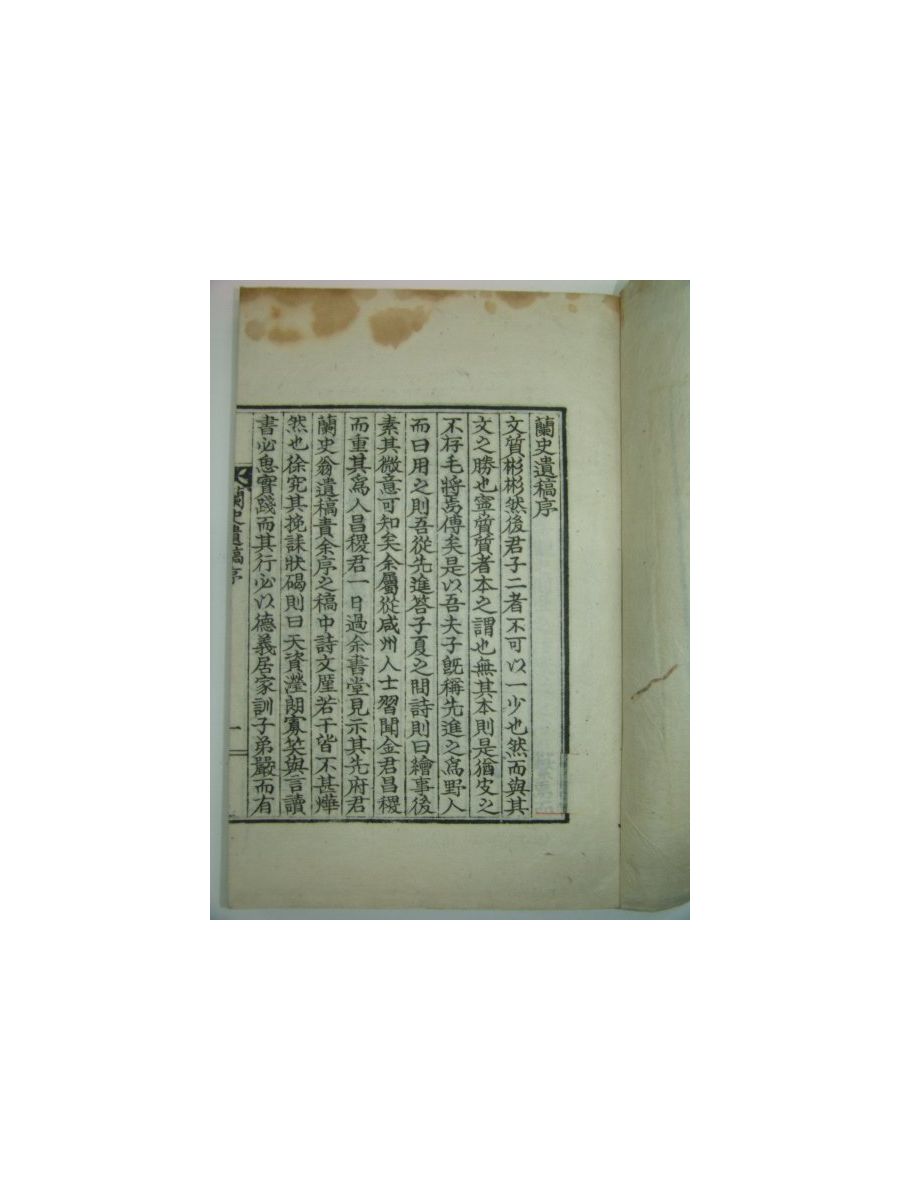 蘭史遺稿序
文質彬彬然後君子二者不可以一少也然而與其
文之勝也寧質質者本之謂也無其本則是猶皮之
不存毛將焉傅矣是以吾夫子旣稱先進之爲野人
而曰用之則吾從先進答子夏之問詩則曰繪事後
素其微意可知矣余屬從咸州人士習聞金君昌稷
而重其爲人昌稷君一日過余書堂見示其先府君
蘭史翁遺稿責余序之稿中詩文厪若干皆不甚燁
然也徐究其挽誄狀碣則曰天資瀅朗寡笑與言讀
書必惠實踐而其行必以德義居家訓子弟嚴而有
蘭史遺稿序
一